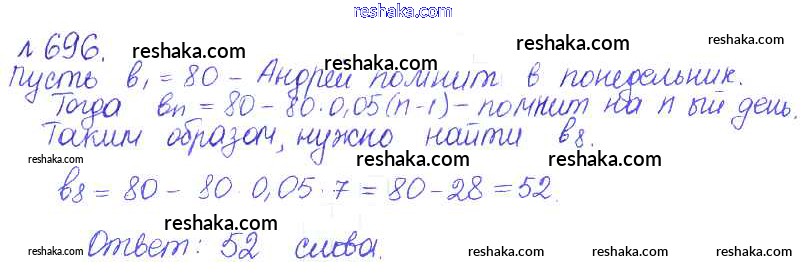 reshaka.com
№ 696.
reshaka.com reshaka.com
Пусть в₁ = 80 - Андрей помнит в понедельник.
reshaka.com reshaka.com
Тогда вn = 80 - 80·0,05(n-1) - помнит на n ый день.
reshaka.com reshaka.com reshaka.com
Таким образом, нужно найти в₈.
reshaka.com reshaka.com reshaka.com
в₈ = 80 - 80·0,05·7 = 80-28 = 52.
reshaka.com
reshaka.com reshaka.com reshaka.com
Ответ: 52 слова.